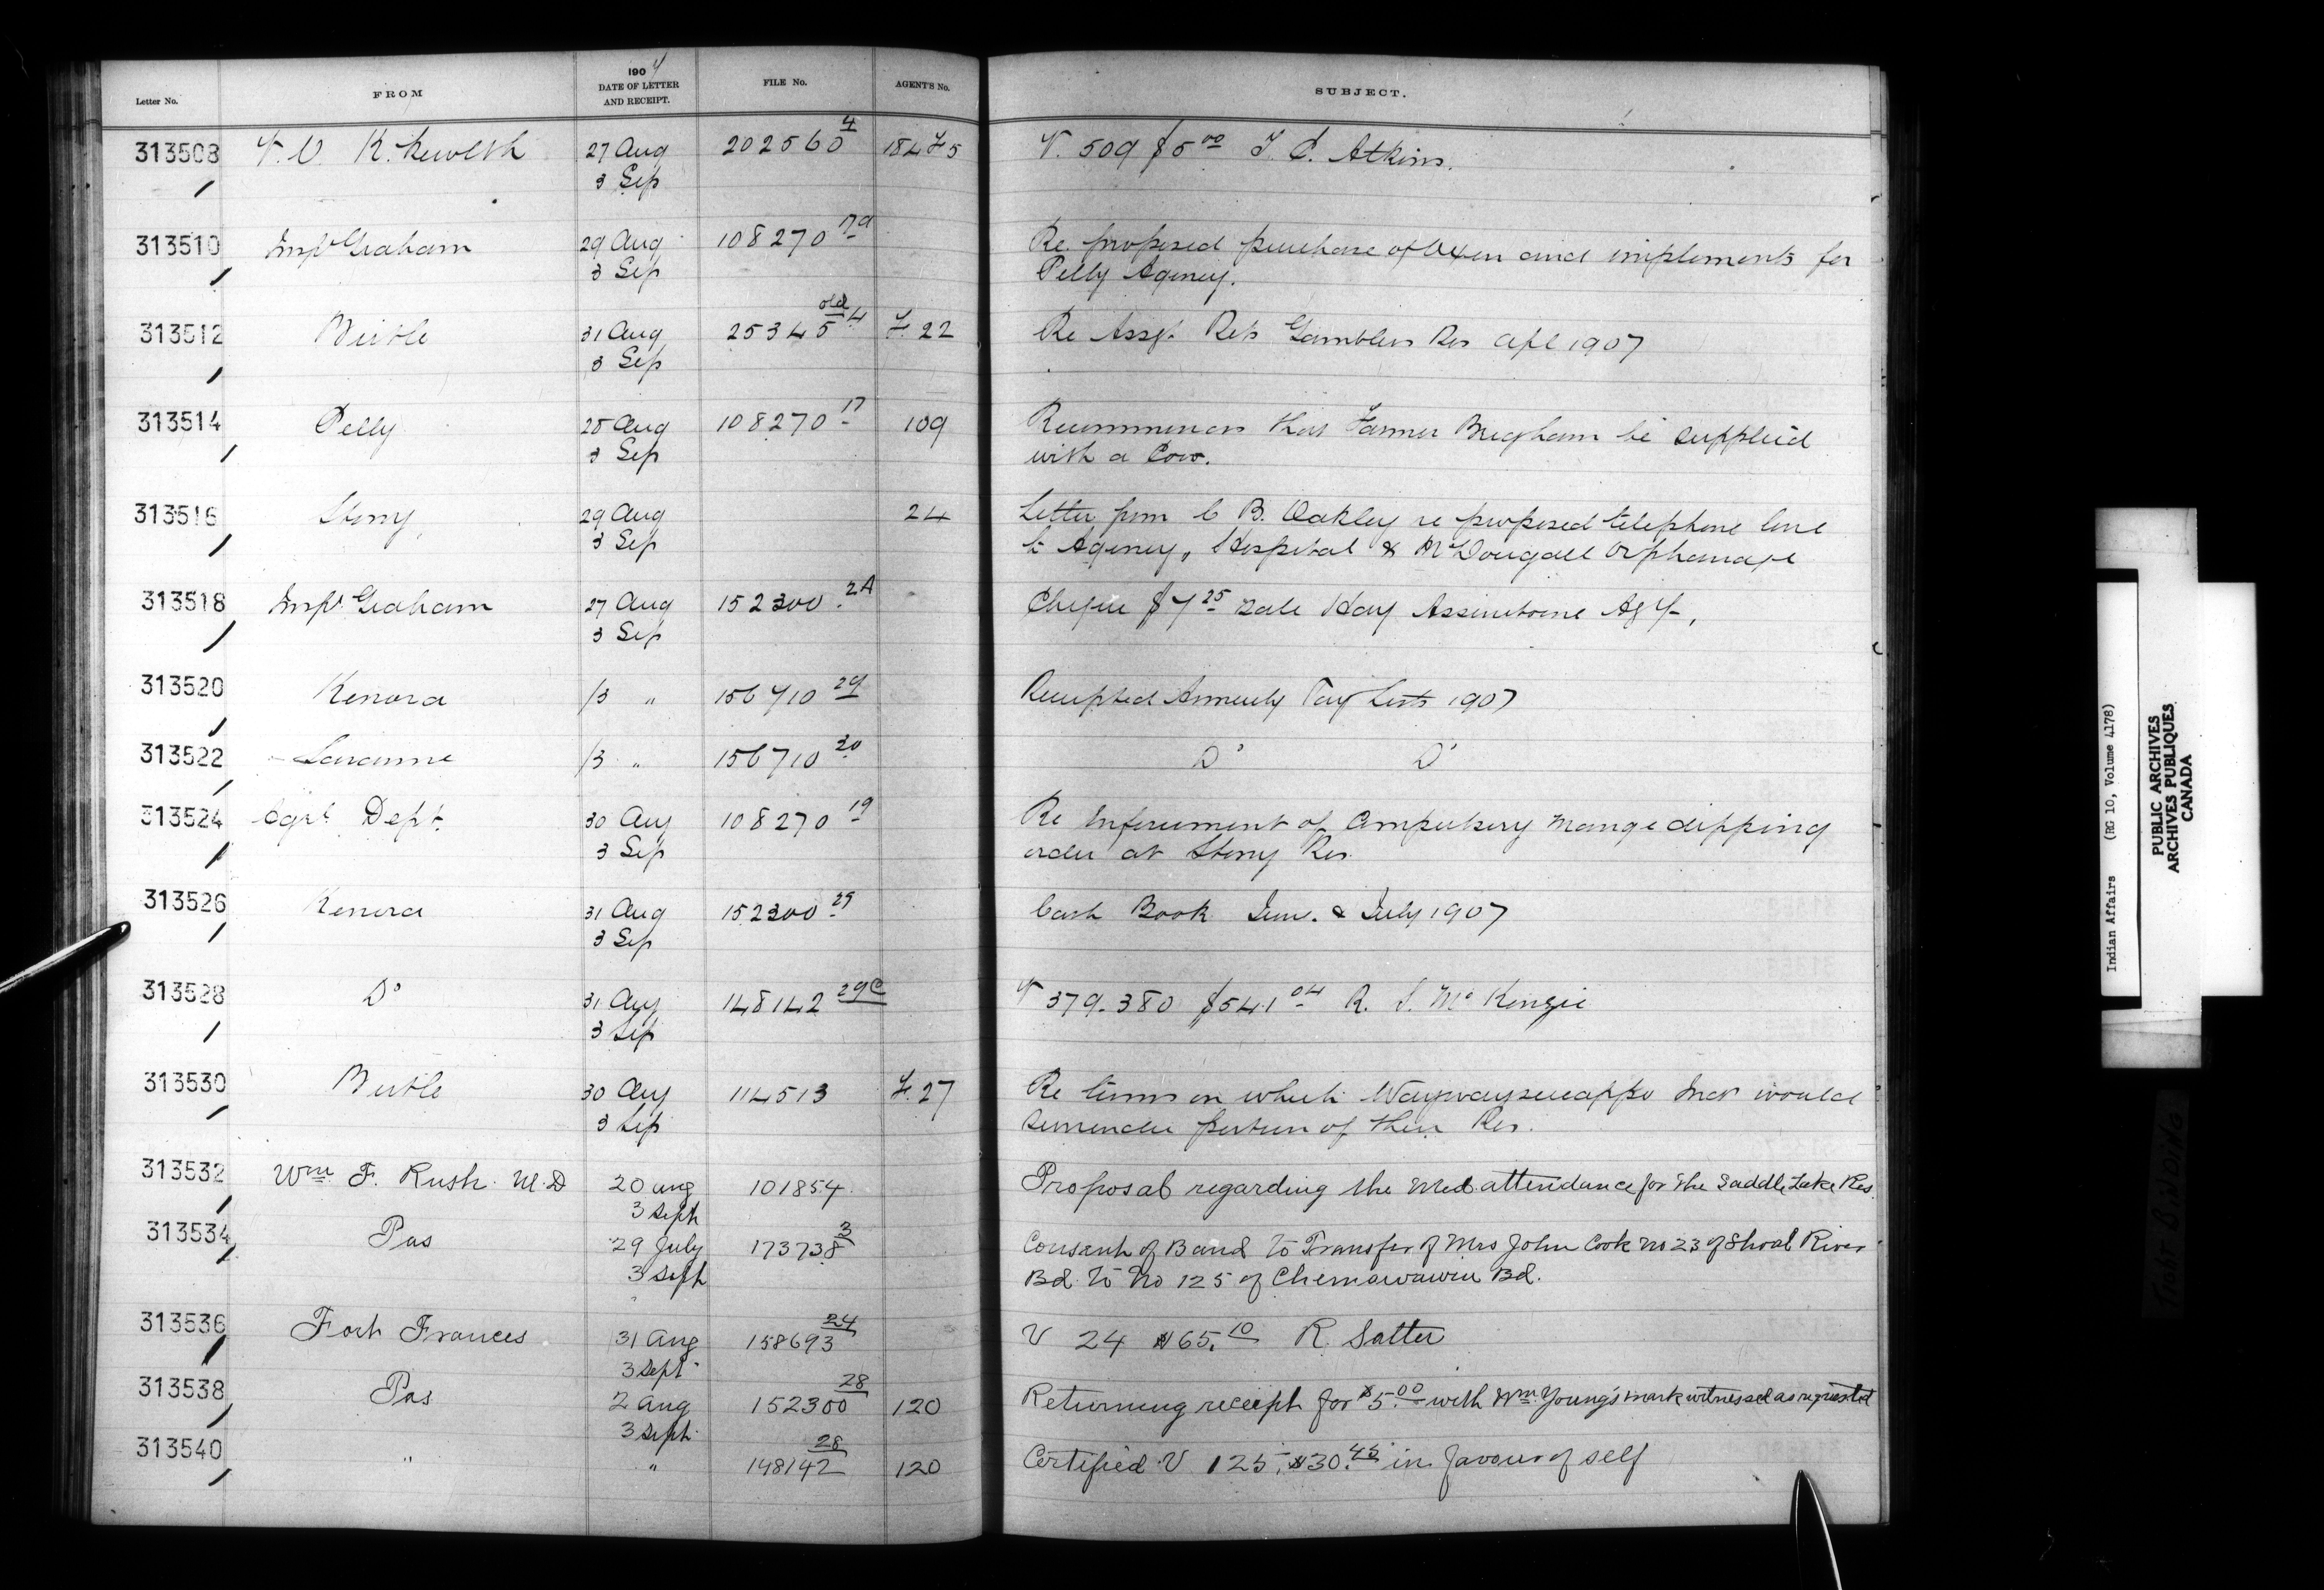 Letter No. FROM 1904 DATE OF LETTER AND RECEIPT. FILE No. AGENTS No. SUBJECT.
313508 27 Aug 202560 4 V. 509 $5 00 Atkins.
3 Sep
313510 Insp Graham 29 Aug 108270 Re proposed purchase of Oxen and implements for
3 Sep Pelly Agency.
313512 Birtle 31 Aug 25345 old 4 F. 22 Re Assgt Rets Gamblers Res Apl 1907
3 Sep
313514 Pelly 28 Aug 108270 17 109 Recommends that Farmer Brigham be supplied
3 Sep with a Cow.
313516 Stony 29 Aug 24 Letter from C B. Oakley re proposed telephone line
3 Sep to Agency, Hospital & McDougall Orphanage
313518 Insp Graham 27 Aug 152300 2A Cheque $7 25 sale Hay Assiniboine Agy.
3 Sep
313520 Kenora /3 " 156710 29 Receipted Annuity Pay Lists 1907
313522 Savanne /3 " 156710 30 Do Do
313524 Agrl Dept. 30 Aug 108270 19 Re Enforcement of Compulsory Mange dipping
3 Sep order at Stony Res.
313526 Kenora 31 Aug 152300 29 Cash Book June & July 1907
3 Sep
313528 Do 31 Aug 148142 29C V 379-380 $541 04 R. S. McKenzie
3 Sep
313530 Birtle 30 Aug 114513 F. 27 Re terms on which Waywayseecappo Inds would
3 Sep surrender portion of their Res.
313532 Wm F. Rush M.D 20 Aug 101854 Proposal regarding the Med. attendance for the Saddle Lake Res.
3 Sept
313534 Pas 29 July 173738 3 Consent of Band to Transfer of Mrs John Cook No 23 of Shoal River
3 Sept Bd. to No 125 of Chemawawin Bd.
313536 Fort Frances 31 Aug 158693 24 V 24 $65.10 R. Satter
3 Sept
313538 Pas 2 Aug 152300 28 120 Returning receipt for $5.00 with Wm. Young's mark witnessed as requested
3 Sept
313540 " " 148142 28 120 Certified V 125, $30.45 in favour of self
Indian Affairs (RG 10, Volume 4178)
PUBLIC ARCHIVES
ARCHIVES PUBLIQUES
CANADA
TIGHT BINDING